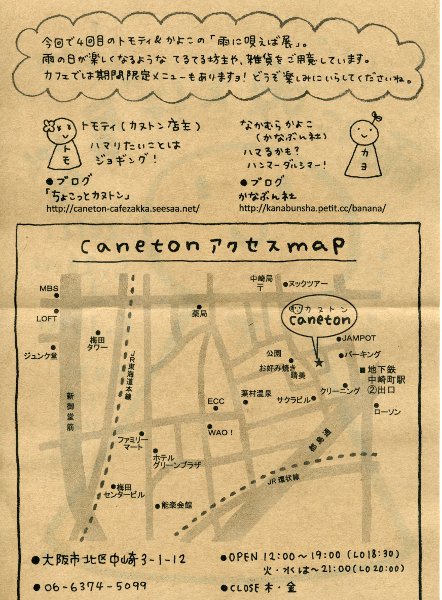 今回で4回目のトモティ&かよこの「雨に唄えば展」。
雨の日が楽しくなるような てるてる坊主や、雑貨をご用意しています。
カフェでは期間限定メニューもありますョ! どうぞ楽しみにいらしてくださいね。
トモティ(カヌトン店主)
ハマりたいことは
ジョギング!
トモ
●ブログ
「ちょこっとカヌトン」
http://caneton-cafezakka.seesaa.net/
なかむらかよこ
(かなぶん社)
ハマてるかも?
ハンマーダルシマー!
カヨ
●ブログ
かなぶん社
http://kanabunsha.petit.cc/banana/
canetonアクセスmap
MBS
LOFT
ジュンク堂
梅田
タワー
新御堂筋
JR東海道本線
薬局
中崎局
〒
ヌックツアー
カヌトン
caneton
JAMPOT
パーキング
公園
お好み焼き
晴美
地下鉄
中崎町駅
②出口
クリーニング
サクラビル
葉村温泉
ECC
WAO!
ローソン
都島通
ファミリー
マート
ホテル
グリーンプラザ
JR環状線
梅田
センタービル
能楽会館
●大阪市北区中崎3-1-12
●06-6374-5099
●OPEN 12:00~19:00 (LO18:30)
火・水は~21:00(LO20:00)
●CLOSE 木・金